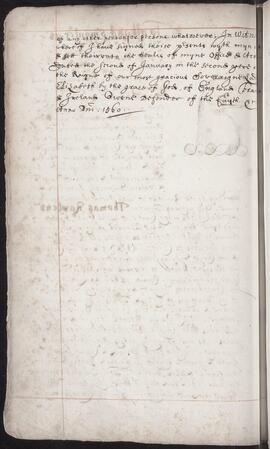 or any other person or persons whatsoever. In Witn
wherof I have signed theise p'sents with myn
& sett the seales of myne Office
dated the second of January in the second yere
the Reigne of our most gracious Soveraigne
Elizabeth by the grace of God, of England
& Ireland Queene defendor of the Faith
Anno Dni. 1560